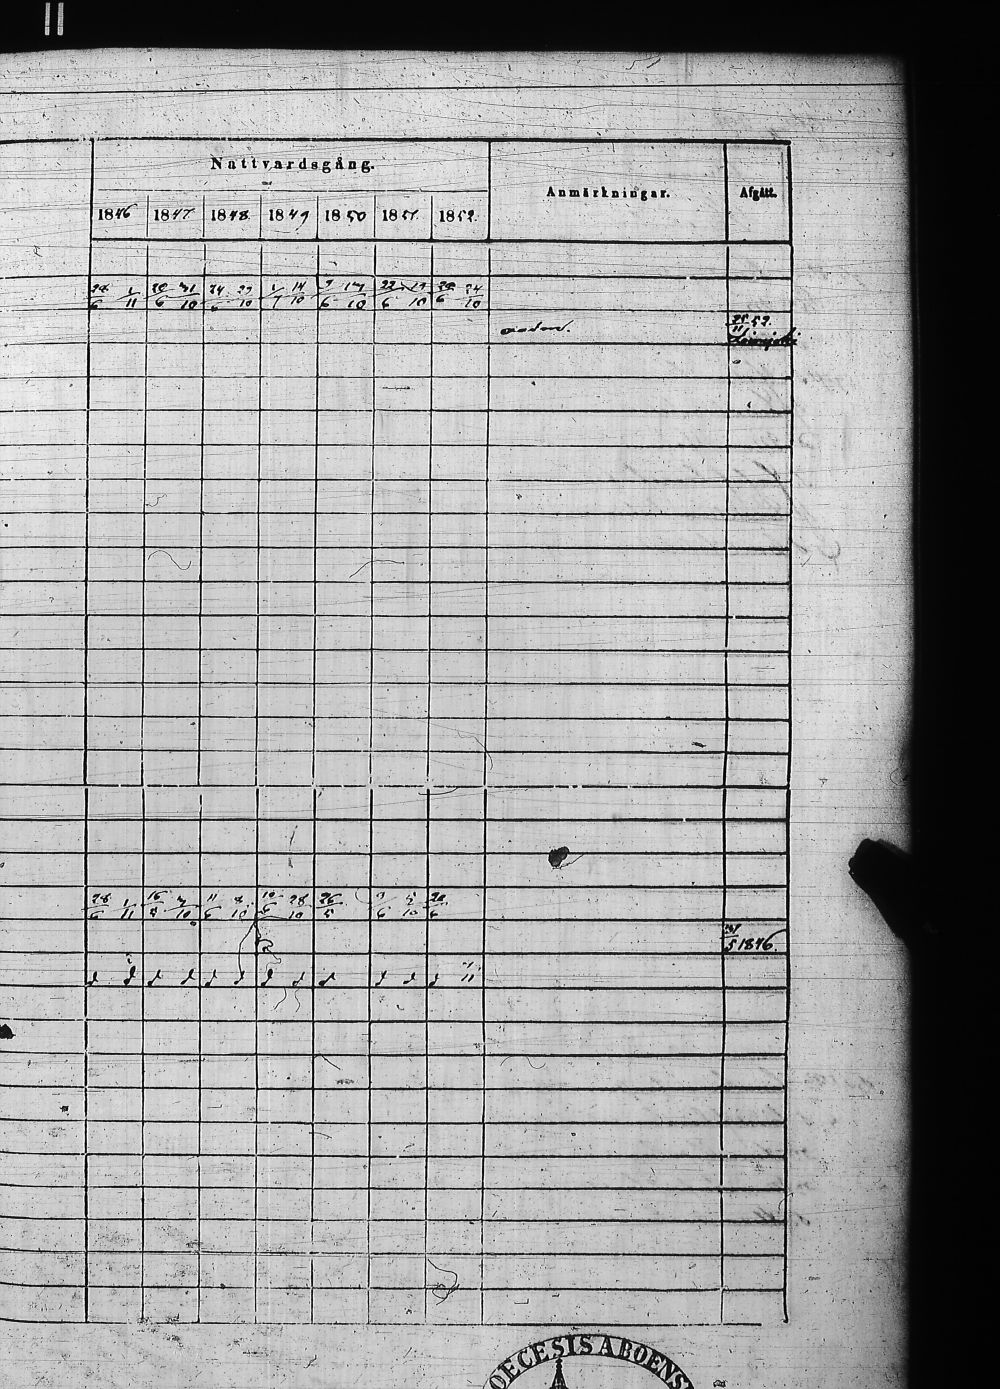 Nattvardsgång. Anmärkningar. Afgått.
1846 1847 1848 1849 1850 1851 1852.
28/6 1/11 20/6 31/10 24/6 29/10 1/7 14/10 9/6 13/10 22/6 19/10 20/6 24/10
25/11 52.
28/6 1/11 16/5 3/10 11/6 8/10 10/6 28/10 26/5 9/6 5/10 20/6
31/5 1846.
d d d d d d d d d d d d 11
DIOECESIS ABOENS